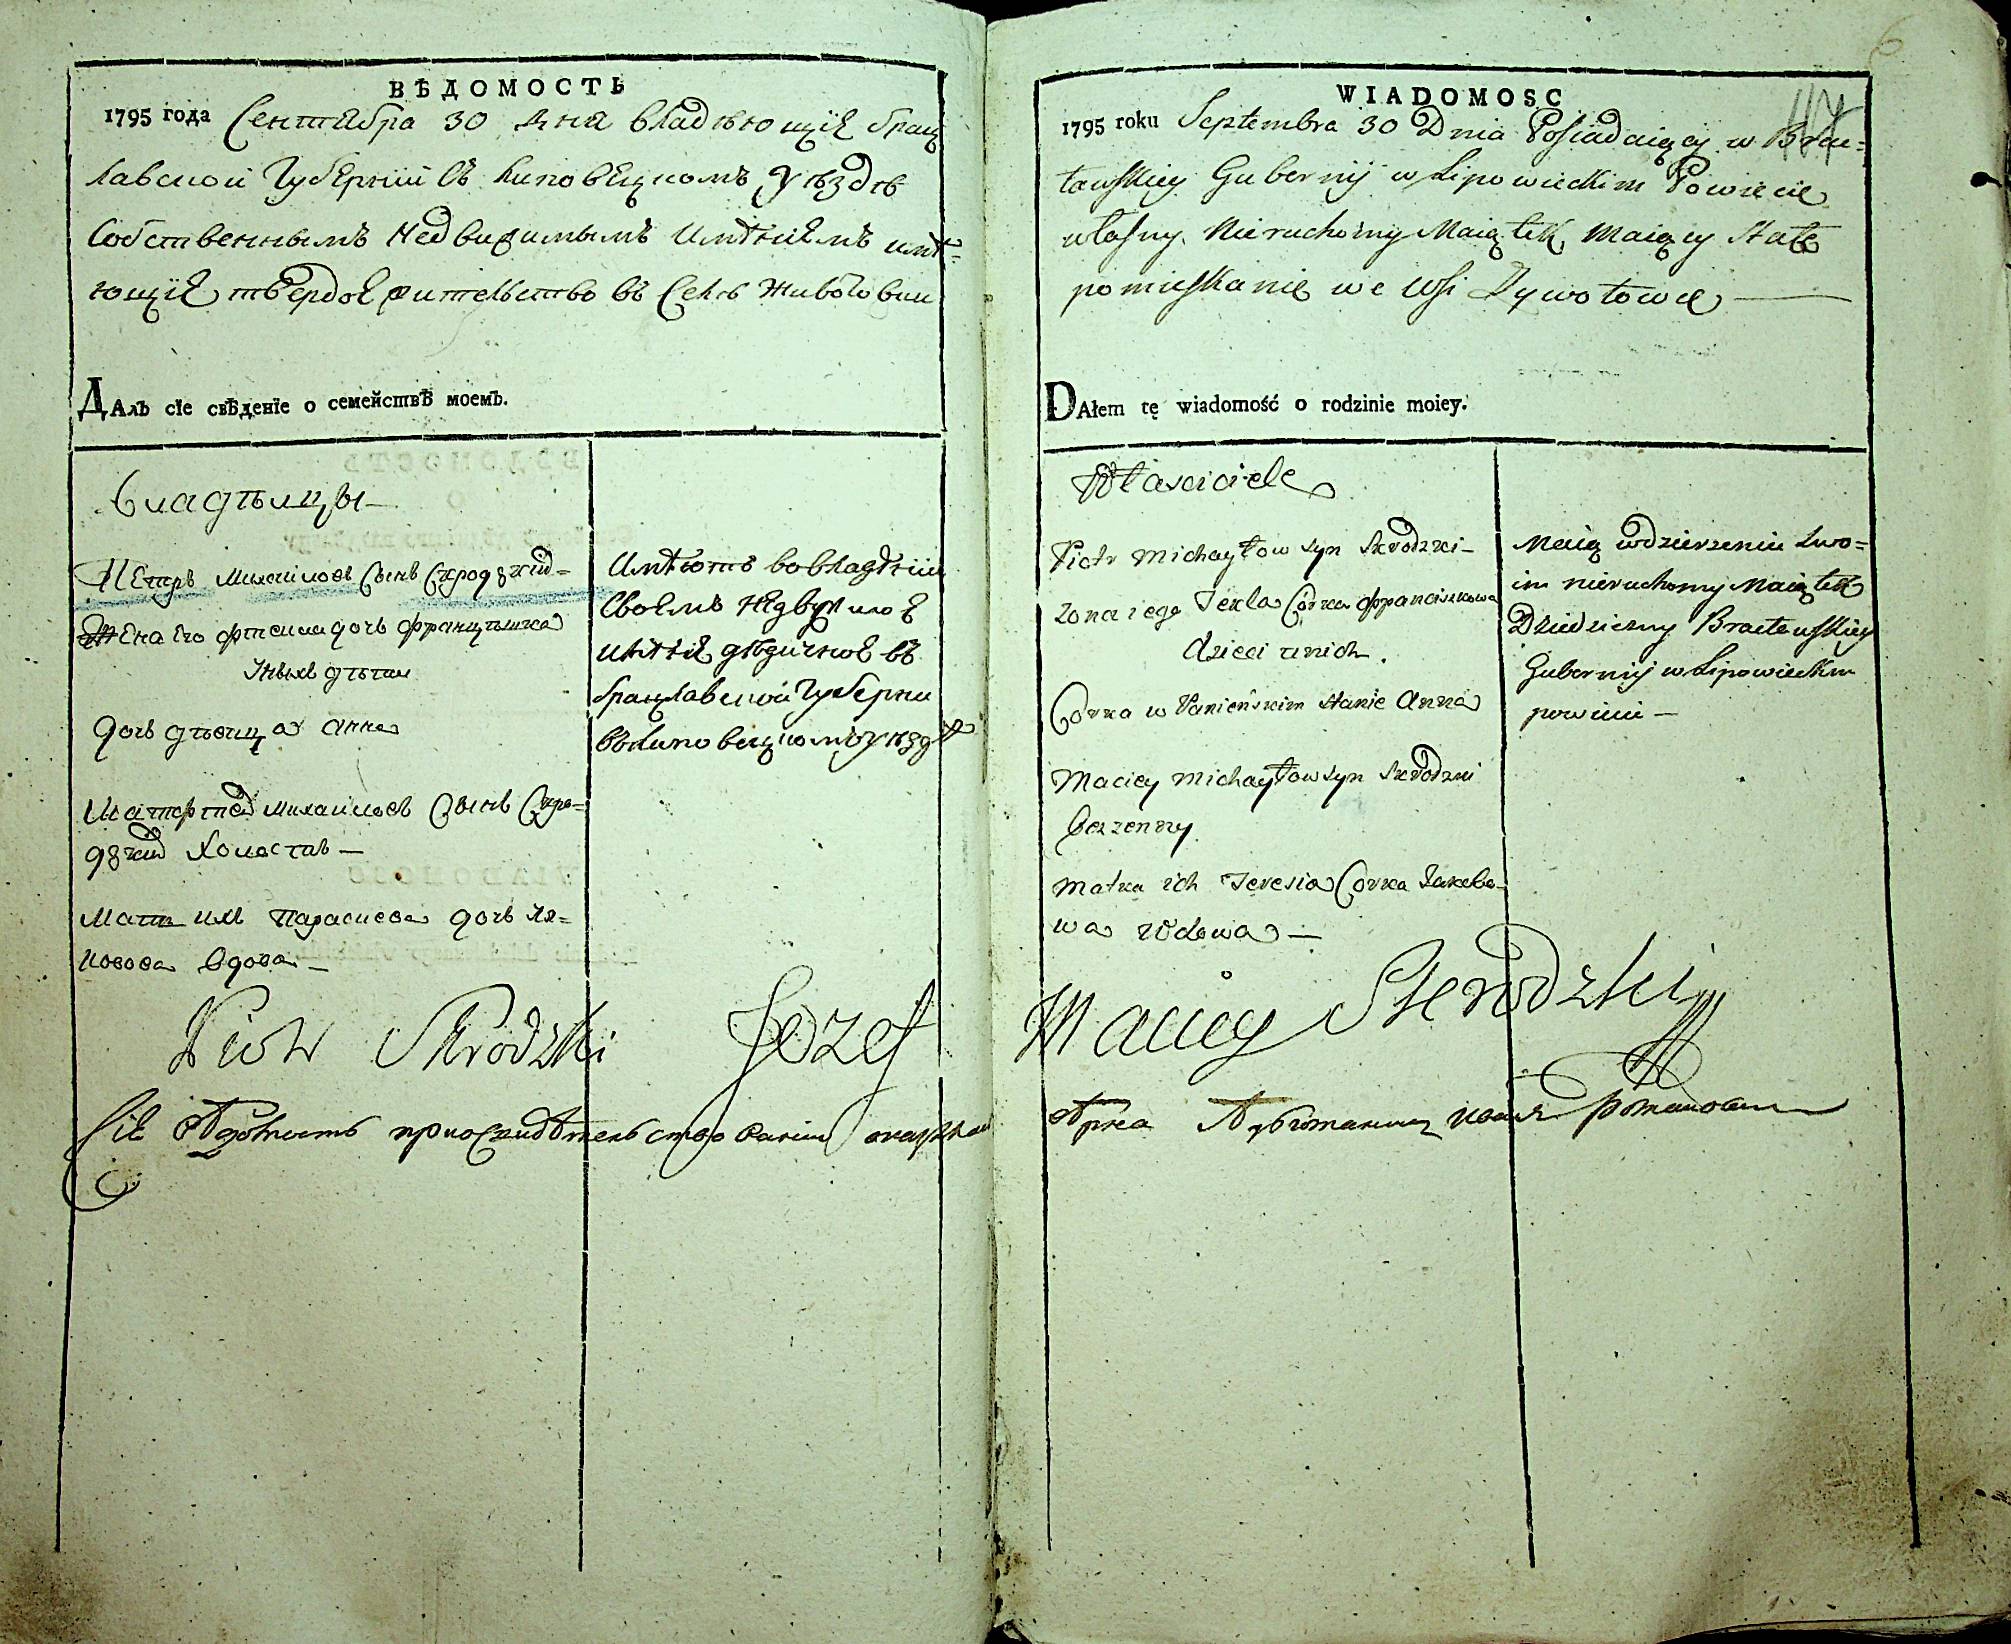 ВѢДОМОСТЬ
1795 года Сентября 30 дня владѣющіе брац
лавской Губерніи въ Липовецкомъ уѣздѣ
собственнымъ недвижимымъ имѣніемъ имѣ-
ющіе твердое жительство въ селѣ Животовки
Далъ сїе свѣденїе о семействѣ моемъ.
владѣльцы
Петръ Михайловъ сынъ Скродзкій
Жена его Фтекла дочь Францишка
у нихъ дѣтей
дочь дѣвица Анна
Михайловъ сынъ Скро-
дзкій холостъ —
Мать ихъ дочь Я-
кова вдова —
Имѣютъ во владѣніи
своемъ недвижимое
имѣніе дѣдичное въ
брацлавской Губерніи
въ Липовецкомъ уѣздѣ
Piotr Skrodzki Jozef
Сіе
WIADOMOSC
6
117
1795 roku Septembra 30 Dnia Posiadaiący w Brac=
ławskiey Gubernij w Lipowieckim Powiecie
własny Nieruchomy Maiątek Maiący Stałe
pomieszkanie we Wsi Zywotowce —
DAłem tę wiadomość o rodzinie moiey.
Właściciele
Piotr Michayłow syn Skrodzki
Zona iego Tekla Córka Franciszkowa
dzieci u nich
Corka w Panieńskim stanie Anna
Maciey Michayłow syn Skrodzki
bezzenny
Matka ich Teresia Corka Jakobo-
wa Wdowa —
Maią w dzierzeniu swo=
im nieruchomy Maiątek
Dziedziczny Bracławskiey
Gubernij w Lipowieckim
powiecie —
Maciey Skrodzki